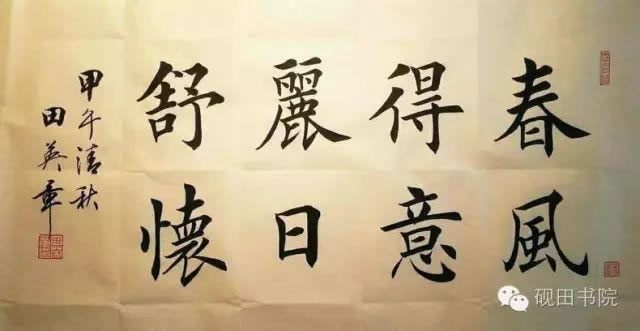 春風
得意
麗日
舒懷
甲午清秋
田英章
砚田书院